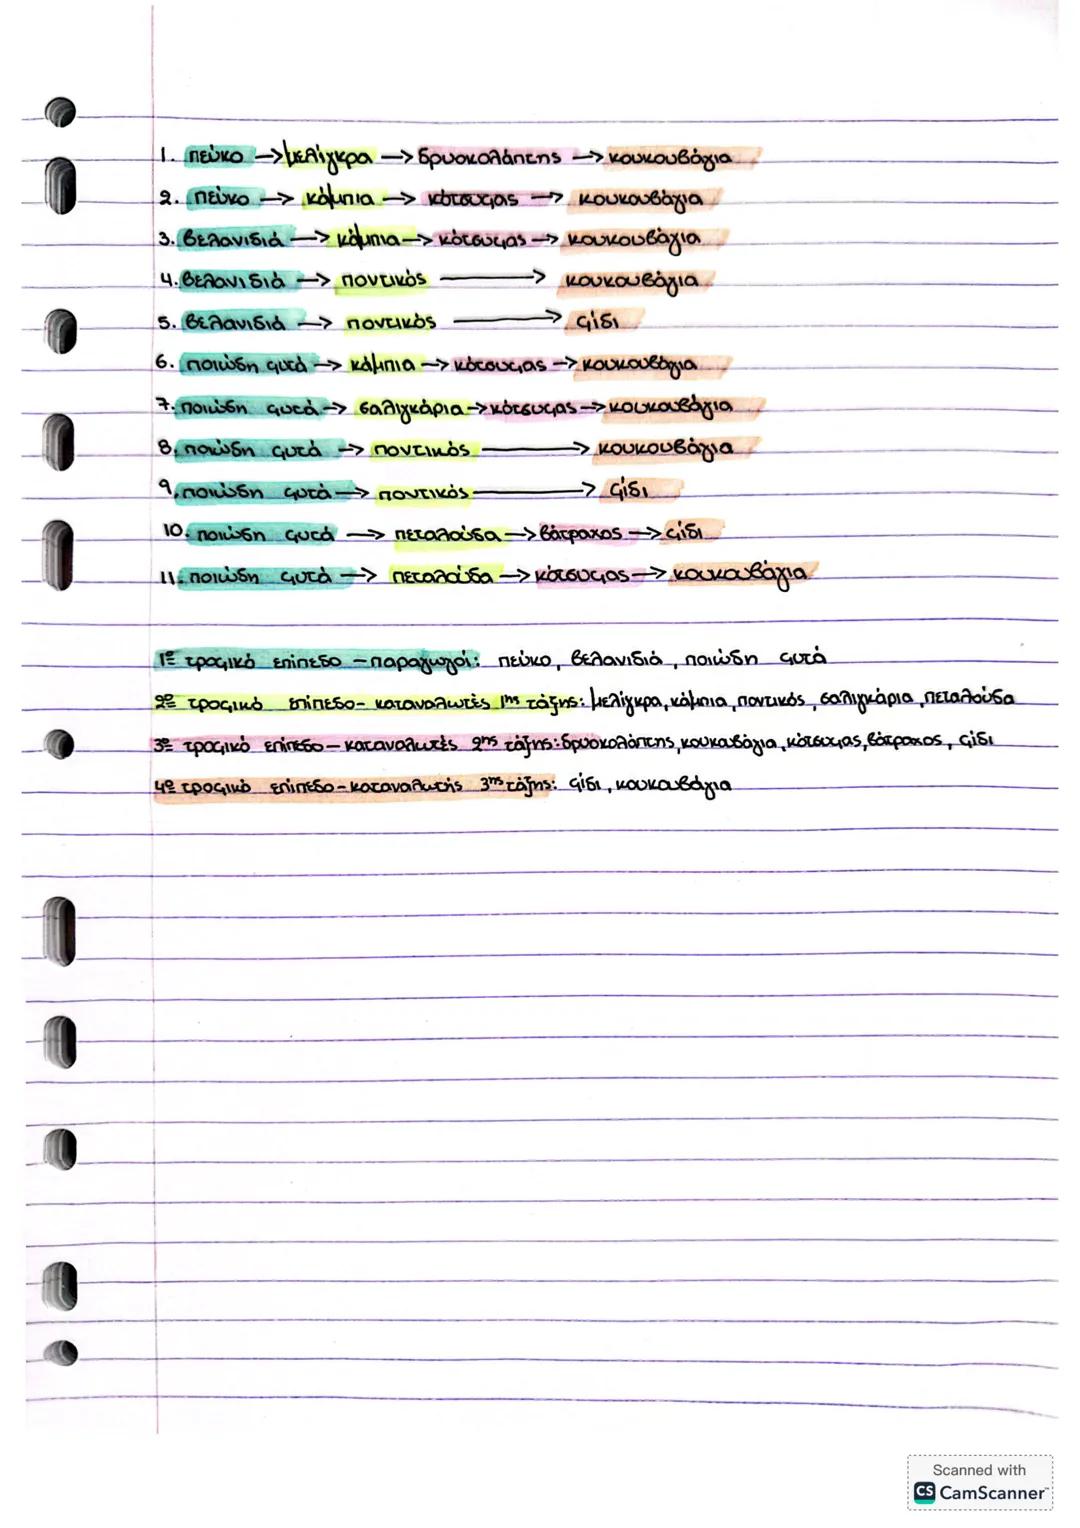 1. πεύκο → μελίγκρα → δρυοκολάπτης → κουκουβάγια
2. πεύκο → κάμπια → κότσυφας → κουκουβάγια
3. βελανιδιά → κάμπια → κότσυφας → κουκουβάγια
4. βελανιδιά → ποντικός → κουκουβάγια
5. βελανιδιά → ποντικός → φίδι
6. ποιώδη φυτά → κάμπια → κότσυφας → κουκουβάγια
7. ποιώδη φυτά → σαλιγκάρια → κότσυφας → κουκουβάγια
8. ποιώδη φυτά → ποντικός → κουκουβάγια
9. ποιώδη φυτά → ποντικός → φίδι
10. ποιώδη φυτά → πεταλούδα → βάτραχος → φίδι
11. ποιώδη φυτά → πεταλούδα → κότσυφας → κουκουβάγια
1ο τροφικό επίπεδο - παραγωγοί: πεύκο, βελανιδιά, ποιώδη φυτά
2ο τροφικό επίπεδο - καταναλωτές 1ης τάξης: μελίγκρα, κάμπια, ποντικός, σαλιγκάρια, πεταλούδα
3ο τροφικό επίπεδο - καταναλωτές 2ης τάξης: δρυοκολάπτης, κουκουβάγια, κότσυφας, βάτραχος, φίδι
4ο τροφικό επίπεδο - καταναλωτής 3ης τάξης: φίδι, κουκουβάγια
Scanned with
CS CamScanner